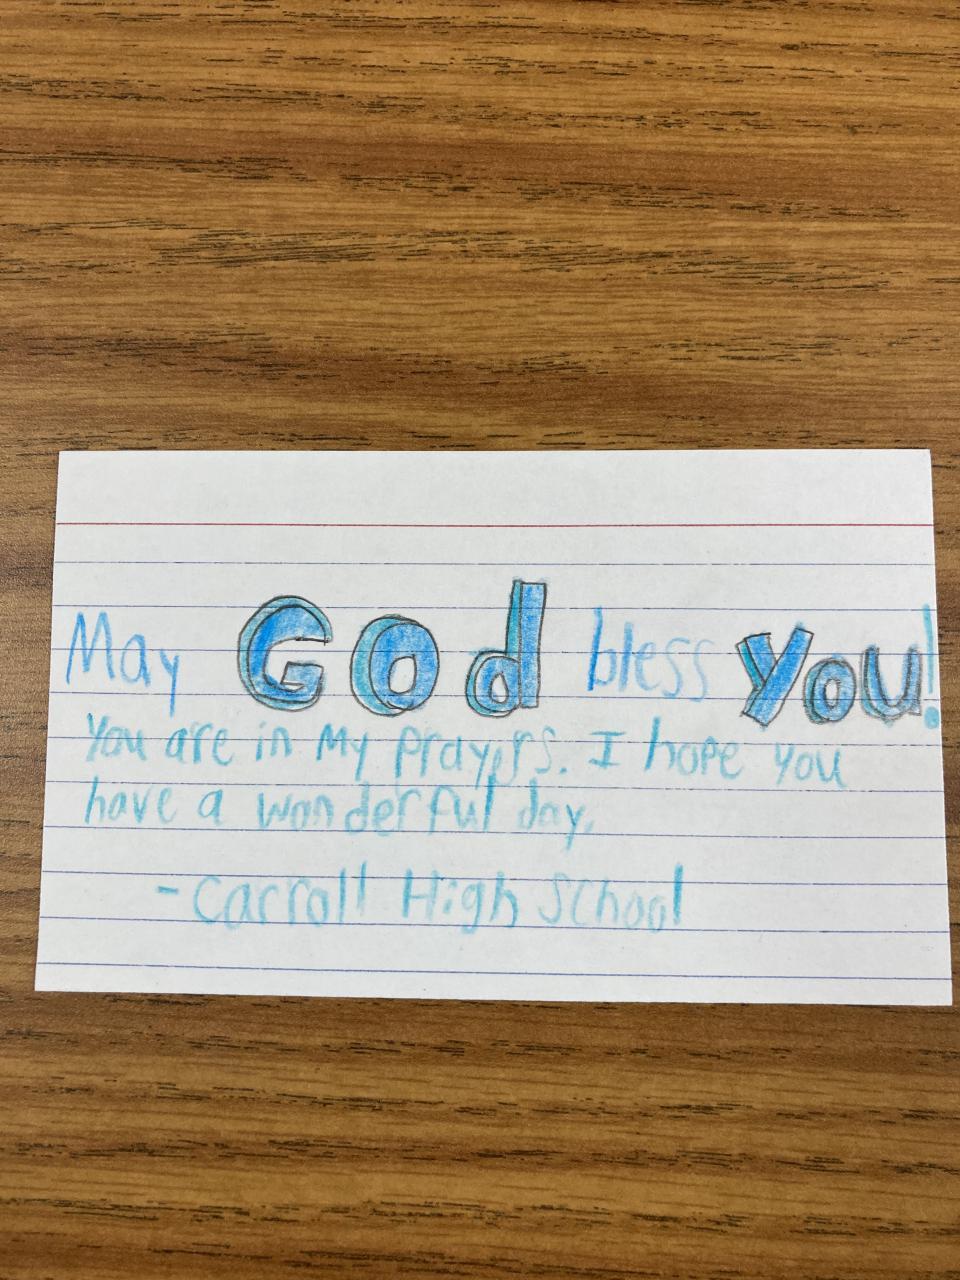 May God bless You!
You are in My prayers. I hope you
have a wonderful day.
- Carroll High School